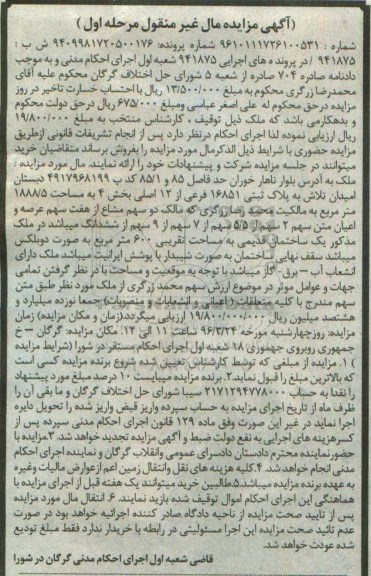 (آگهی مزایده مال غیر منقول مرحله اول)
شماره : ۹۶۱۰۱۱۱۷۲۶۱۰۰۵۳۱ شماره پرونده: ۹۴۰۹۹۸۱۷۲۰۵۰۰۱۷۶ ش ب :
۹۴۱۸۷۵ / در پرونده های اجرایی ۹۴۱۸۷۵ شعبه اول اجرای احکام مدنی و به موجب
دادنامه صادره ۷۰۴ صادره از شعبه ۵ شورای حل اختلاف گرگان محکوم علیه آقای
محمدرضا زرگری محکوم به مبلغ ۱۳/۵۰۰/۰۰۰ ریال با احتساب خسارت تاخیر در روز
مزایده درحق محکوم له علی اصغر عباسی ومبلغ ۶۷۵/۰۰۰ ریال درحق دولت محکوم
و بدهکارمی باشد که ملک ذیل توقیف ، کارشناس منتخب به مبلغ ۱۹/۸۰۰/۰۰۰
ریال ارزیابی نموده لذا اجرای احکام درنظر دارد پس از انجام تشریفات قانونی ازطریق
مزایده حضوری با شرایط ذیل الذکرمال مورد مزایده را بفروش برساند متقاضیان خرید
میتوانند در جلسه مزایده شرکت و پیشنهادات خود را ارائه نمایند. مال مورد مزایده :
ملک به آدرس بلوار ناهار خوران حد فاصل ۸۵ و 85/1 کد پ ۴۹۱۷۹۶۸۱۹۹ دبستان
امیدان تلاش به پلاک ثبتی ۱۶۸۵۱ فرعی از ۱۲ اصلی بخش ۴ به مساحت 1888/5
متر مربع به مالکیت محمد رضا زرگری که مالک دو سهم مشاع از هفت سهم عرصه و
اعیان متن سهم ۲ سهم از ۵/۵ سهم از ۷ سهم از ۹ سهم از ششدانگ میباشد در ملک
مذکور یک ساختمان قدیمی به مساحت تقریبی ۶۰۰ متر مربع به صورت دوبلکس
میباشد سقف نهایی ساختمان به صورت شیبدار با پوشش ایرانیت میباشد ملک دارای
انشعاب آب – برق– گاز میباشد با توجه به موقعیت و مساحت با در نظر گرفتن تمامی
جهات و عوامل موثر در موضوع ارزش سهم محمد زرگری از ملک مورد نظر طبق متن
سهم مندرج با کلیه متعلقات ( اعیانی و انشعابات و منصوبات) جمعا نوزده میلیارد و
هشتصد میلیون ریال ۱۹/۸۰۰/۰۰۰/۰۰۰ ارزیابی میگردد.(زمان و مکان مزایده) زمان
مزایده: روزچهارشنبه مورخه ۹۶/۳/۲۴ ساعت ۱۱ الی ۱۲. مکان مزایده: گرگان – خ
جمهوری روبروی جمهوری ۱۸ شعبه اول اجرای احکام مستقر در شورا (شرایط مزایده
) ۱. مزایده از مبلغی که توسط کارشناس تعیین شده شروع برنده مزایده کسی است
که بالاترین مبلغ را قبول نماید.۲. برنده مزایده میبایست ۱۰ درصد مبلغ مورد پیشنهاد
را نقدا به حساب ۲۱۷۱۲۹۴۷۷۸۰۰۰ سیبا شورای حل اختلاف گرگان و ما بقی آن را
ظرف ماه از تاریخ اجرای مزایده به حساب سپرده واریز قبض واریز شده را تحویل دایره
اجرا نماید در غیر این صورت وفق ماده ۱۲۹ قانون اجرای احکام مدنی سپرده پس از
کسرهزینه های اجرایی به نفع دولت ضبط و آگهی مزایده تجدید خواهد شد. ۳.مزایده با
حضورنماینده محترم دادستان دادسرای عمومی وانقلاب گرگان و نماینده اجرای احکام
مدنی انجام خواهد شد. ۴.کلیه هزینه های نقل وانتقال زمین اعم ازعوارض مالیات وغیره
به عهده برنده مزایده میباشد.۵.طالبین خرید میتوانند یک هفته قبل از اجرای مزایده با
هماهنگی این اجرای احکام اموال توقیف شده بازید نمایند. ۶. انتقال مال مورد مزایده
پس از تایید صحت مزایده از ناحیه دادگاه صادر کننده اجرائیه خواهد بود در صورت
عدم تائید صحت مزایده این اجرا مسئولیتی در رابطه با خریدار ندارد فقط مبلغ تودیع
شده عودت خواهد شد.
قاضی شعبه اول اجرای احکام مدنی گرگان در شورا